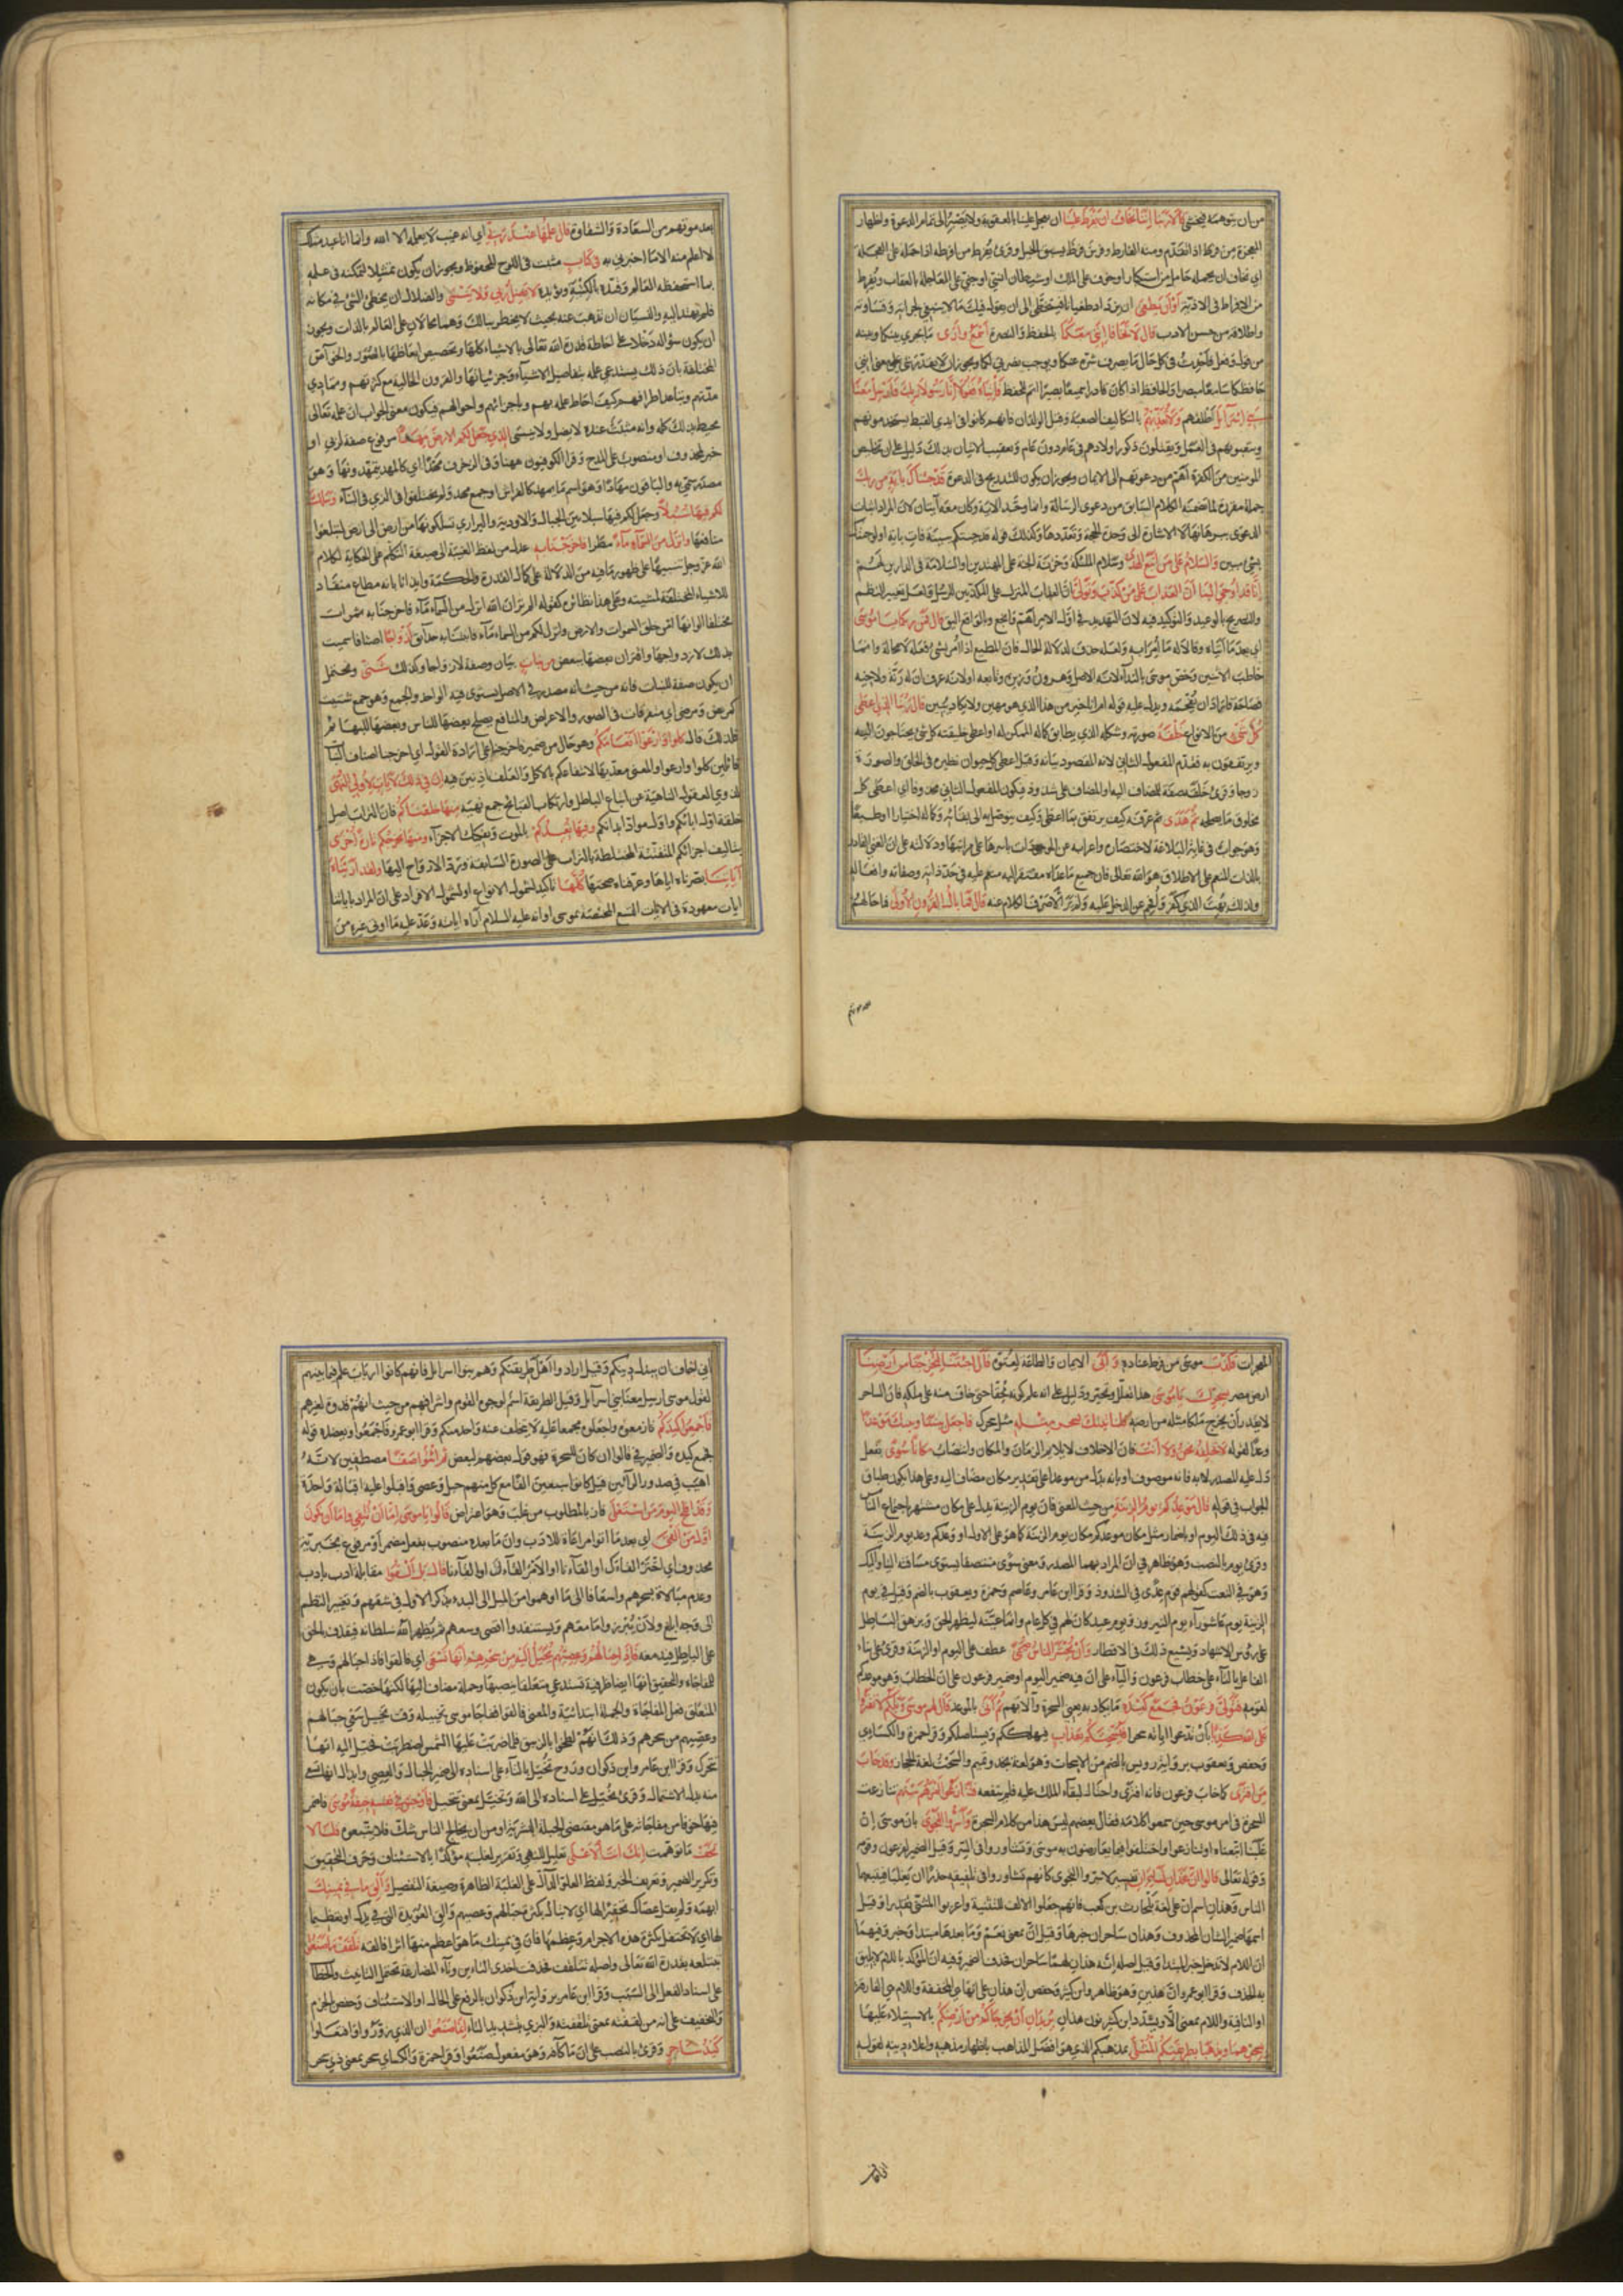 من ان يتوهمه فيخشى قالا ربنا اننا نخاف ان يفرط علينا ان يعجل علينا بالعقوبة ولا يصبر الى تمام الدعوة واظهار
المعجزة من فرط اذا تقدم ومنه الفارط وفرس فرط يسبق الخيل وقرئ يفرط من افرطته اذا حملته على العجلة
اي نخاف ان يحمله حامل من استكبار او خوف على الملك او شيطان انسي او جني على المعاجلة بالعقاب ويفرط
من الافراط في الاذية او ان يطغى ان يزداد طغيانا فيتخطى الى ان يقول فيك ما لا ينبغي لجراءته وقساوته
واطلاقه من حسن الادب قال لا تخافا انني معكما بالحفظ والنصرة اسمع وارى ما يجري بينكما وبينه
من قول وفعل فاحدث في كل حال ما يصرف شره عنكما ويوجب نصرتي لكما ويجوز ان لا يقدر شئ على معنى انني
حافظكما سامعا مبصرا والحافظ اذا كان قادرا سميعا بصيرا تم الحفظ فأتياه فقولا انا رسولا ربك فارسل معنا
بني اسرائيل اطلقهم ولا تعذبهم بالتكاليف الصعبة وقتل الولدان فانهم كانوا في ايدي القبط يستخدمونهم
ويتعبونهم في العمل ويقتلون ذكور اولادهم في عام دون عام وتعقيب الاتيان بذلك دليل على ان تخليص
المومنين من الكفرة اهم من دعوتهم الى الايمان ويجوز ان يكون للتدريج في الدعوة قد جئناك بآية من ربك
جملة مقررة لما تضمنه الكلام السابق من دعوى الرسالة وانما وحد الآية وكان معه آيتان لان المراد اثبات
الدعوى ببرهانها لا الاشارة الى وحدة الحجة وتعددها وكذلك قوله قد جئتكم ببينة فات باية اولو جئتك
بشئ مبين والسلام على من اتبع الهدى وسلام الملئكة وخزنة الجنة على المهتدين والسلامة في الدارين لهم
انا قد اوحي الينا ان العذاب على من كذب وتولى ان العذاب المنزل على المكذبين للرسل ولعل تغيير النظم
والتصريح بالوعيد والتوكيد فيه لان التهديد في اول الامر اهم وانجع وبالواقع اليق قال فمن ربكما يا موسى
اي بعد ما اتياه وقالا له ما امرا به ولعله حذف لدلالة الحال فان المطيع اذا امر بشئ فعله لا محالة وانما
خاطب الاثنين وخص موسى بالنداء لانه الاصل وهرون وزيره وتابعه او لانه عرف ان له رتة ولاخيه
فصاحة فاراد ان يفحمه ويدل عليه قوله ام انا خير من هذا الذي هو مهين ولا يكاد يبين قال ربنا الذي اعطى
كل شئ من الانواع خلقه صورته وشكله الذي يطابق كماله الممكن له او اعطى خليقته كل شئ يحتاجون اليه
ويرتفقون به فقدم المفعول الثاني لانه المقصود بيانه وقيل اعطى كل حيوان نظيره في الخلق والصورة
زوجا وقرئ خلقه صفة للمضاف اليه او المضاف على شذوذ فيكون المفعول الثاني محذوفا اي اعطى كل
مخلوق ما يصلحه ثم هدى ثم عرفه كيف يرتفق بما اعطى وكيف يتوصل به الى بقائه وكماله اختيارا او طبعا
وهو جواب في غاية البلاغة لاختصاره واعرابه عن الموجودات باسرها على مراتبها ودلالته على ان الغني القادر
بالذات المنعم على الاطلاق هو الله تعالى فان جميع ما عداه مفتقر اليه منعم عليه في حد ذاته وصفاته وافعاله
ولذلك بهت الذي كفر وافحم عن الدخل عليه ولم ير الا صرف الكلام عنه قال فما بال القرون الاولى فما حالهم
بعد موتهم من السعادة والشقاوة قال علمها عند ربي اي انه غيب لا يعلمه الا الله وانما انا عبد مثلك
لا اعلم منه الا ما اخبرني به في كتاب مثبت في اللوح المحفوظ ويجوز ان يكون تمثيلا لتمكنه في علمه
بما استحفظه العالم وقيده بالكتبة ويؤيده لا يضل ربي ولا ينسى والضلال ان يخطئ الشئ في مكانه
فلم يهتد اليه والنسيان ان تذهب عنه بحيث لا يخطر ببالك وهما محالان على العالم بالذات ويجوز
ان يكون سؤاله دخلا على احاطة قدرة الله تعالى بالاشياء كلها وتخصيص ابعاضها بالصور والخواص
المختلفة بان ذلك يستدعي علمه بتفاصيل الاشياء وجزئياتها والقرون الخالية مع كثرتهم وتمادي
مدتهم وتباعد اطرافهم كيف احاط علمه بهم وباجزائهم واحوالهم فيكون معنى الجواب ان علمه تعالى
محيط بذلك كله وانه مثبت عنده لا يضل ولا ينسى الذي جعل لكم الارض مهادا مرفوع صفة لربي او
خبر لمحذوف او منصوب على المدح وقرأ الكوفيون ههنا وفي الزخرف مهدا اي كالمهد يتمهدونها وهو
مصدر سمي به والباقون مهادا وهو اسم ما يمهد كالفراش او جمع مهد ولم يختلفوا في الذي في النبأ وسلك
لكم فيها سبلا وجعل لكم فيها سبلا بين الجبال والاودية والبراري تسلكونها من ارض الى ارض لتبلغوا
منافعها وانزل من السماء ماء مطرا فاخرجنا به عدل من لفظ الغيبة الى صيغة التكلم على الحكاية لكلام
الله عز وجل تنبيها على ظهور ما فيه من الدلالة على كمال القدرة والحكمة وايذانا بانه مطاع منقاد
للاشياء المختلفة لمشيته وعلى هذا نظائره كقوله الم تر ان الله انزل من السماء ماء فاخرجنا به ثمرات
مختلفا الوانها امن خلق السموات والارض وانزل لكم من السماء ماء فانبتنا به حدائق ازواجا اصنافا سميت
بذلك لازدواجها واقتران بعضها ببعض من نبات بيان وصفة لازواجا وكذلك شتى ويحتمل
ان يكون صفة للنبات فانه من حيث انه مصدر في الاصل يستوي فيه الواحد والجمع وهو جمع شتيت
كمريض ومرضى اي متفرقات في الصور والاعراض والمنافع يصلح بعضها للناس وبعضها للبهائم
فلذلك قال كلوا وارعوا انعامكم وهو حال من ضمير فاخرجنا على ارادة القول اي اخرجنا اصناف النبات
قائلين كلوا وارعوا والمعنى معديها لانتفاعكم بالاكل والعلف اذنين فيه ان في ذلك لايات لاولي النهى
لذوي العقول الناهية عن اتباع الباطل وارتكاب القبائح جمع نهية منها خلقناكم فان التراب اصل
خلقة اول ابائكم واول مواد ابدانكم وفيها نعيدكم بالموت وتفكيك الاجزاء ومنها نخرجكم تارة اخرى
بتاليف اجزائكم المتفتتة المختلطة بالتراب على الصورة السابقة ورد الارواح اليها ولقد اريناه
آياتنا بصرناه اياها او عرفناه صحتها كلها تاكيد لشمول الانواع او لشمول الافراد على ان المراد باياتنا
ايات معهودة هي الايات التسع المختصة بموسى او انه عليه السلام اراه اياته وعد عليه ما اوتي غيره من
المعجزات فكذب موسى من فرط عناده وابى الايمان والطاعة لعتوه قال اجئتنا لتخرجنا من ارضنا
ارض مصر بسحرك يا موسى هذا تعلل وتحير ودليل على انه علم كونه محقا حتى خاف منه على ملكه فان الساحر
لا يقدر ان يخرج ملكا مثله من ارضه فلنأتينك بسحر مثله مثل سحرك فاجعل بيننا وبينك موعدا
وعدا لقوله لا نخلفه نحن ولا انت فان الاخلاف لا يلايم الزمان والمكان وانتصاب مكانا سوى بفعل
دل عليه المصدر لا به فانه موصوف او بانه بدل من موعدا على تقدير مكان مضاف اليه وعلى هذا يكون طباق
الجواب في قوله قال موعدكم يوم الزينة من حيث المعنى فان يوم الزينة يدل على مكان مشتهر باجتماع الناس
فيه في ذلك اليوم او باضمار مثل مكان موعدكم مكان يوم الزينة كما هو على الاول او وعدكم وعد يوم الزينة
وقرئ يوم بالنصب وهو ظاهر في ان المراد بهما المصدر ومعنى سوى منتصفا يستوي مسافته الينا واليك
وهو في النعت كقولهم قوم عدى في الشذوذ وقرأ ابن عامر وعاصم وحمزة ويعقوب بالضم وقيل في يوم
الزينة يوم عاشوراء او يوم النيروز او يوم عيد كان لهم في كل عام وانما عينه ليظهر الحق ويزهق الباطل
على رؤس الاشهاد ويشيع ذلك في الاقطار وان يحشر الناس ضحى عطف على اليوم او الزينة وقرئ على بناء
الفاعل بالتاء على خطاب فرعون والياء على ان فيه ضمير اليوم او ضمير فرعون على ان الخطاب
لقومه فتولى فرعون فجمع كيده ما يكاد به يعني السحرة وآلاتهم ثم اتى بالموعد قال لهم موسى ويلكم لا تفتروا
على الله كذبا بان تدعوا اياته سحرا فيسحتكم بعذاب فيهلككم ويستاصلكم وقرأ حمزة والكسائي
وحفص ويعقوب برواية رويس بالضم من الاسحات وهو لغة نجد وتميم والسحت لغة الحجاز وقد خاب
من افترى كما خاب فرعون فانه افترى واحتال ليبقى الملك عليه فلم ينفعه فتنازعوا امرهم بينهم تنازعت
السحرة في امر موسى حين سمعوا كلامه فقال بعضهم ليس هذا من كلام السحرة واسروا النجوى بان موسى ان
غلبنا اتبعناه او تنازعوا واختلفوا فيما يعارضون به موسى وتشاوروا في السر وقيل الضمير لفرعون وقومه
وقوله تعالى قالوا ان هذان لساحران تفسير لاسروا النجوى كانهم تشاوروا في تلفيقه حذرا ان يغلبا فيتبعهما
الناس وهذان اسم ان على لغة بلحارث بن كعب فانهم جعلوا الالف للتثنية واعربوا المثنى تقديرا وقيل
اسمها ضمير الشان المحذوف وهذان ساحران خبرها وقيل ان بمعنى نعم وما بعدها مبتدا وخبر وفيهما
ان اللام لا تدخل خبر المبتدا وقيل اصله انه هذان لهما ساحران فحذف الضمير وفيه ان المؤكد باللام لا يليق
به الحذف وقرأ ابو عمرو ان هذين وهو ظاهر وابن كثير وحفص ان هذان على انها هي المخففة واللام هي الفارقة
او النافية واللام بمعنى الا ويشدد ابن كثير نون هذان يريدان ان يخرجاكم من ارضكم بالاستيلاء عليها
بسحرهما ويذهبا بطريقتكم المثلى بمذهبكم الذي هو افضل المذاهب باظهار مذهبه واعلاء دينه لقوله
اني اخاف ان يبدل دينكم وقيل اراد وا اهل طريقتكم وهم بنوا اسرائيل فانهم كانوا ارباب علم فيما بينهم
لقول موسى ارسل معنا بني اسرائيل وقيل الطريقة اسم لوجوه القوم واشرافهم من حيث انهم قدوة لغيرهم
فاجمعوا كيدكم فازمعوه واجعلوه مجمعا عليه لا يتخلف عنه واحد منكم وقرأ ابو عمرو فاجمعوا ويعضده قوله
فجمع كيده والضمير في قالوا ان كان للسحرة فهو قول بعضهم لبعض ثم ائتوا صفا مصطفين لانه
اهيب في صدور الرآئين قيل كانوا سبعين الفا مع كل منهم حبل وعصى واقبلوا عليه اقبالة واحدة
وقد افلح اليوم من استعلى فاز بالمطلوب من غلب وهو اعتراض قالوا يا موسى اما ان تلقي واما ان نكون
اول من القى اي بعد ما اتوا مراعاة للادب وان بما بعده منصوب بفعل مضمر او مرفوع بخبرية
محذوف اي اختر القاءك اولا او القاءنا او الامر القاءك او القاءنا قال بل القوا مقابلة ادب بادب
وعدم مبالاة بسحرهم واسعافا الى ما اوهموا من الميل الى البدء بذكر الاول في شقهم وتغيير النظم
الى وجه ابلغ ولان يبرزوا ما معهم ويستنفدوا اقصى وسعهم ثم يظهر الله سلطانه فيقذف بالحق
على الباطل فيدمغه فاذا حبالهم وعصيهم يخيل اليه من سحرهم انها تسعى اي فالقوا فاذا حبالهم وهي
للمفاجاة والتحقيق انها ايضا ظرفية تستدعي متعلقا ينصبها وجملة تضاف اليها لكنها خصت بان يكون
المتعلق فعل المفاجاة والجملة ابتدائية والمعنى فالقوا ففاجأ موسى تخييله وقت تخييل سعي حبالهم
وعصيهم من سحرهم وذلك بانهم لطخوها بالزيبق فلما ضربت عليها الشمس اضطربت فخيل اليه انها
تتحرك وقرأ ابن عامر وابن ذكوان وروح تخيل بالتاء على اسناده الى ضمير الحبال والعصي وابدال انها تسعى
منه بدل الاشتمال وقرئ يخيل على اسناده الى الله وتخيل بمعنى تتخيل فاوجس في نفسه خيفة موسى فاضمر
فيها خوفا من مفاجاته على ما هو مقتضى الجبلة البشرية او من ان يخالج الناس شك فلا يتبعوه قلنا لا
تخف ما توهمت انك انت الاعلى تعليل للنهي وتقرير لغلبته مؤكدا بالاستئناف وحرف التحقيق
وتكرير الضمير وتعريف الخبر ولفظ العلو الدال على الغلبة الظاهرة وصيغة التفضيل والق ما في يمينك
ابهمه ولم يقل عصاك تحقيرا لها اي لا تبال بكثرة حبالهم وعصيهم والق العويدة التي في يدك او تعظيما
لها اي لا تحتفل بكثرة هذه الاجرام وعظمها فان في يمينك ما هو اعظم منها اثرا فالقه تلقف ما صنعوا
تبتلعه بقدرة الله تعالى واصله تتلقف فحذفت احدى التاءين وتاء المضارعة تحتمل التانيث والخطاب
على اسناد الفعل الى السبب وقرأ ابن عامر برواية ابن ذكوان بالرفع على الحال او الاستئناف وحفص بالجزم
والتخفيف على انه من لقفته بمعنى تلقفته والبزي بتشديد التاء ان ما صنعوا ان الذي زوروا وافتعلوا
كيد ساحر وقرئ بالنصب على ان ما كافة وهو مفعول صنعوا وقرأ حمزة والكسائي سحر بمعنى ذي سحر